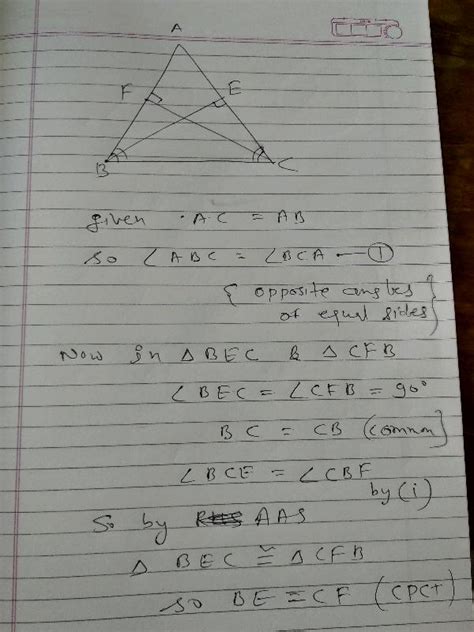 A
F E
B C
given . AC = AB
so ∠ABC = ∠BCA — ①
{ opposite angles
of equal sides }
Now in △ BEC & △ CFB
∠BEC = ∠CFB = 90°
BC = CB (common)
∠BCE = ∠CBF
by (i)
So by AAS
△ BEC ≅ △ CFB
so BE = CF (CPCT)